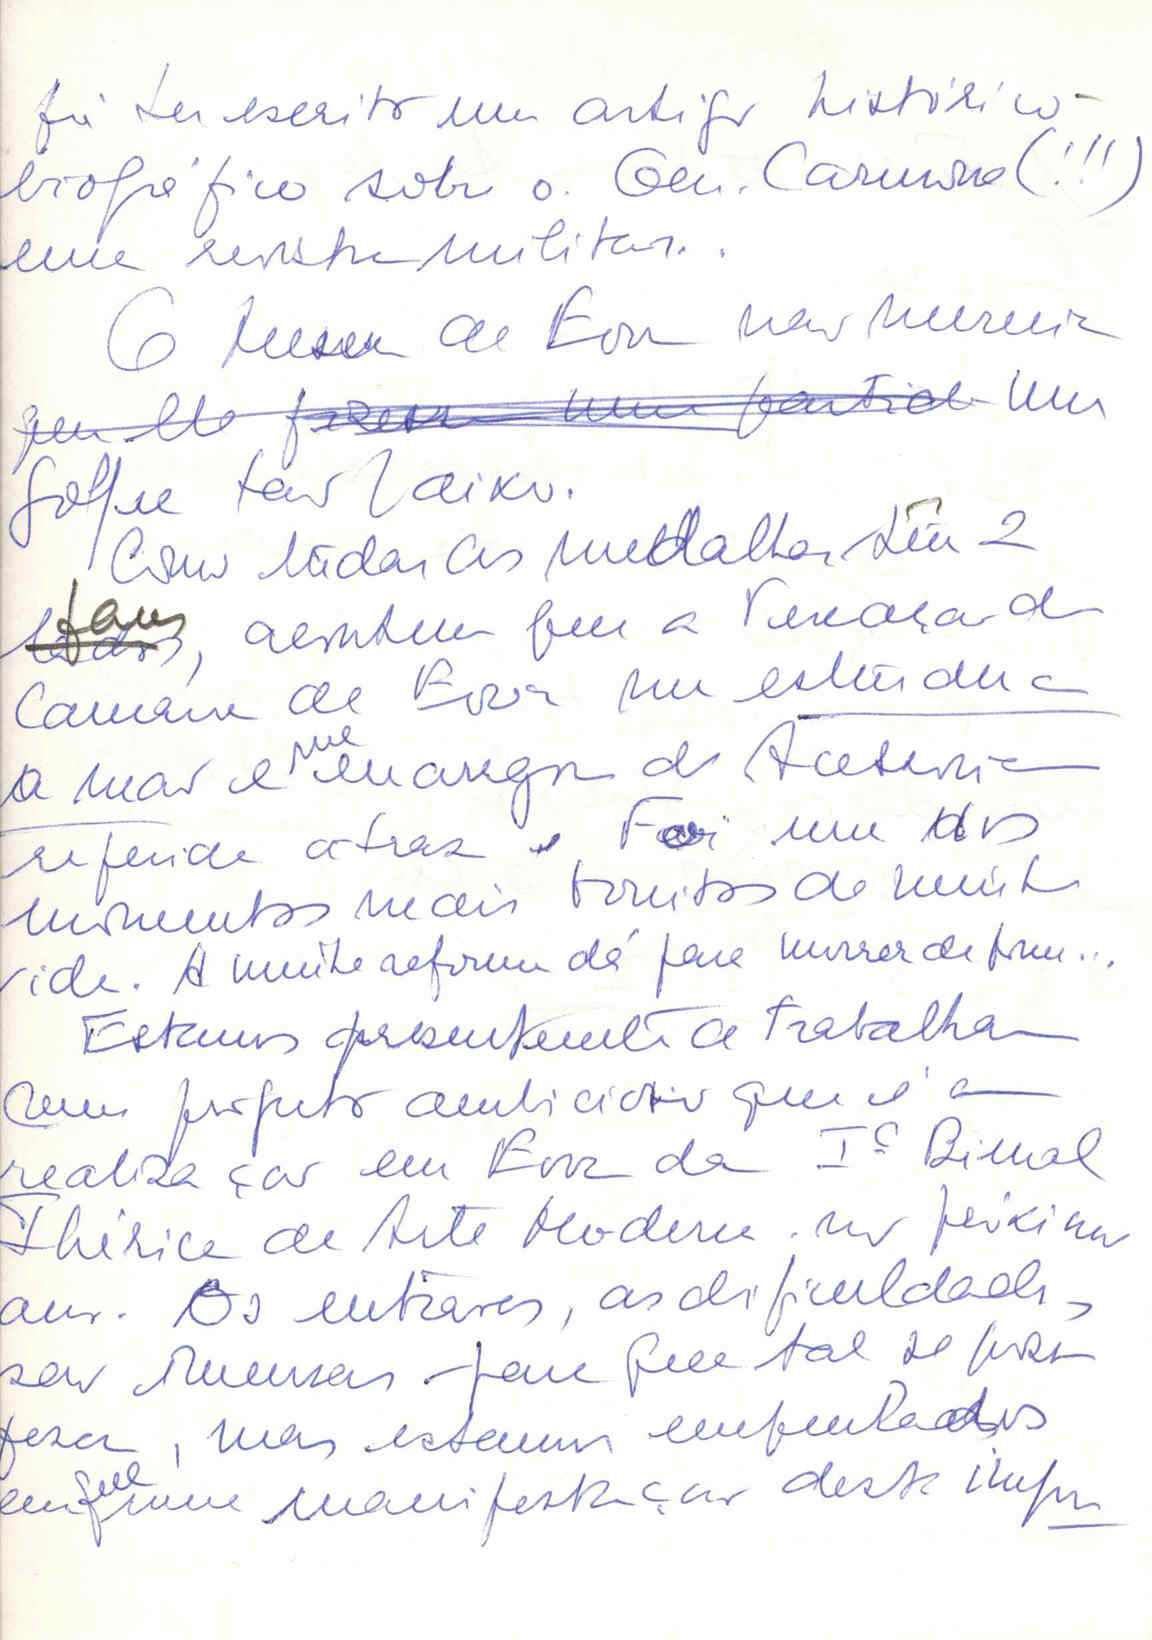 foi ter escrito um artigo histórico-
biográfico sobre o Gen. Carmona (!!!)
numa revista militar..
O Museu de Evora não merecia
que lhe fizessem uma partida um
golpe tão baixo.
Como todas as medalhas têm 2
lados, faces, acontece que a Vereação da
Camara de Evora me estendeu
a mão e me encarregou da Assessoria
referida atraz. Foi um dos
momentos mais bonitos da minha
vida. A minha reforma dá para morrer de fome...
Estamos presentemente a trabalhar
num projecto ambicioso que é a
realização em Evora da Iª Bienal
Ibérica de Arte Moderna no próximo
ano. Os entraves, as dificuldades,
são imensas para que tal se possa
fazer, mas estamos empenhados
em que uma manifestação deste impu